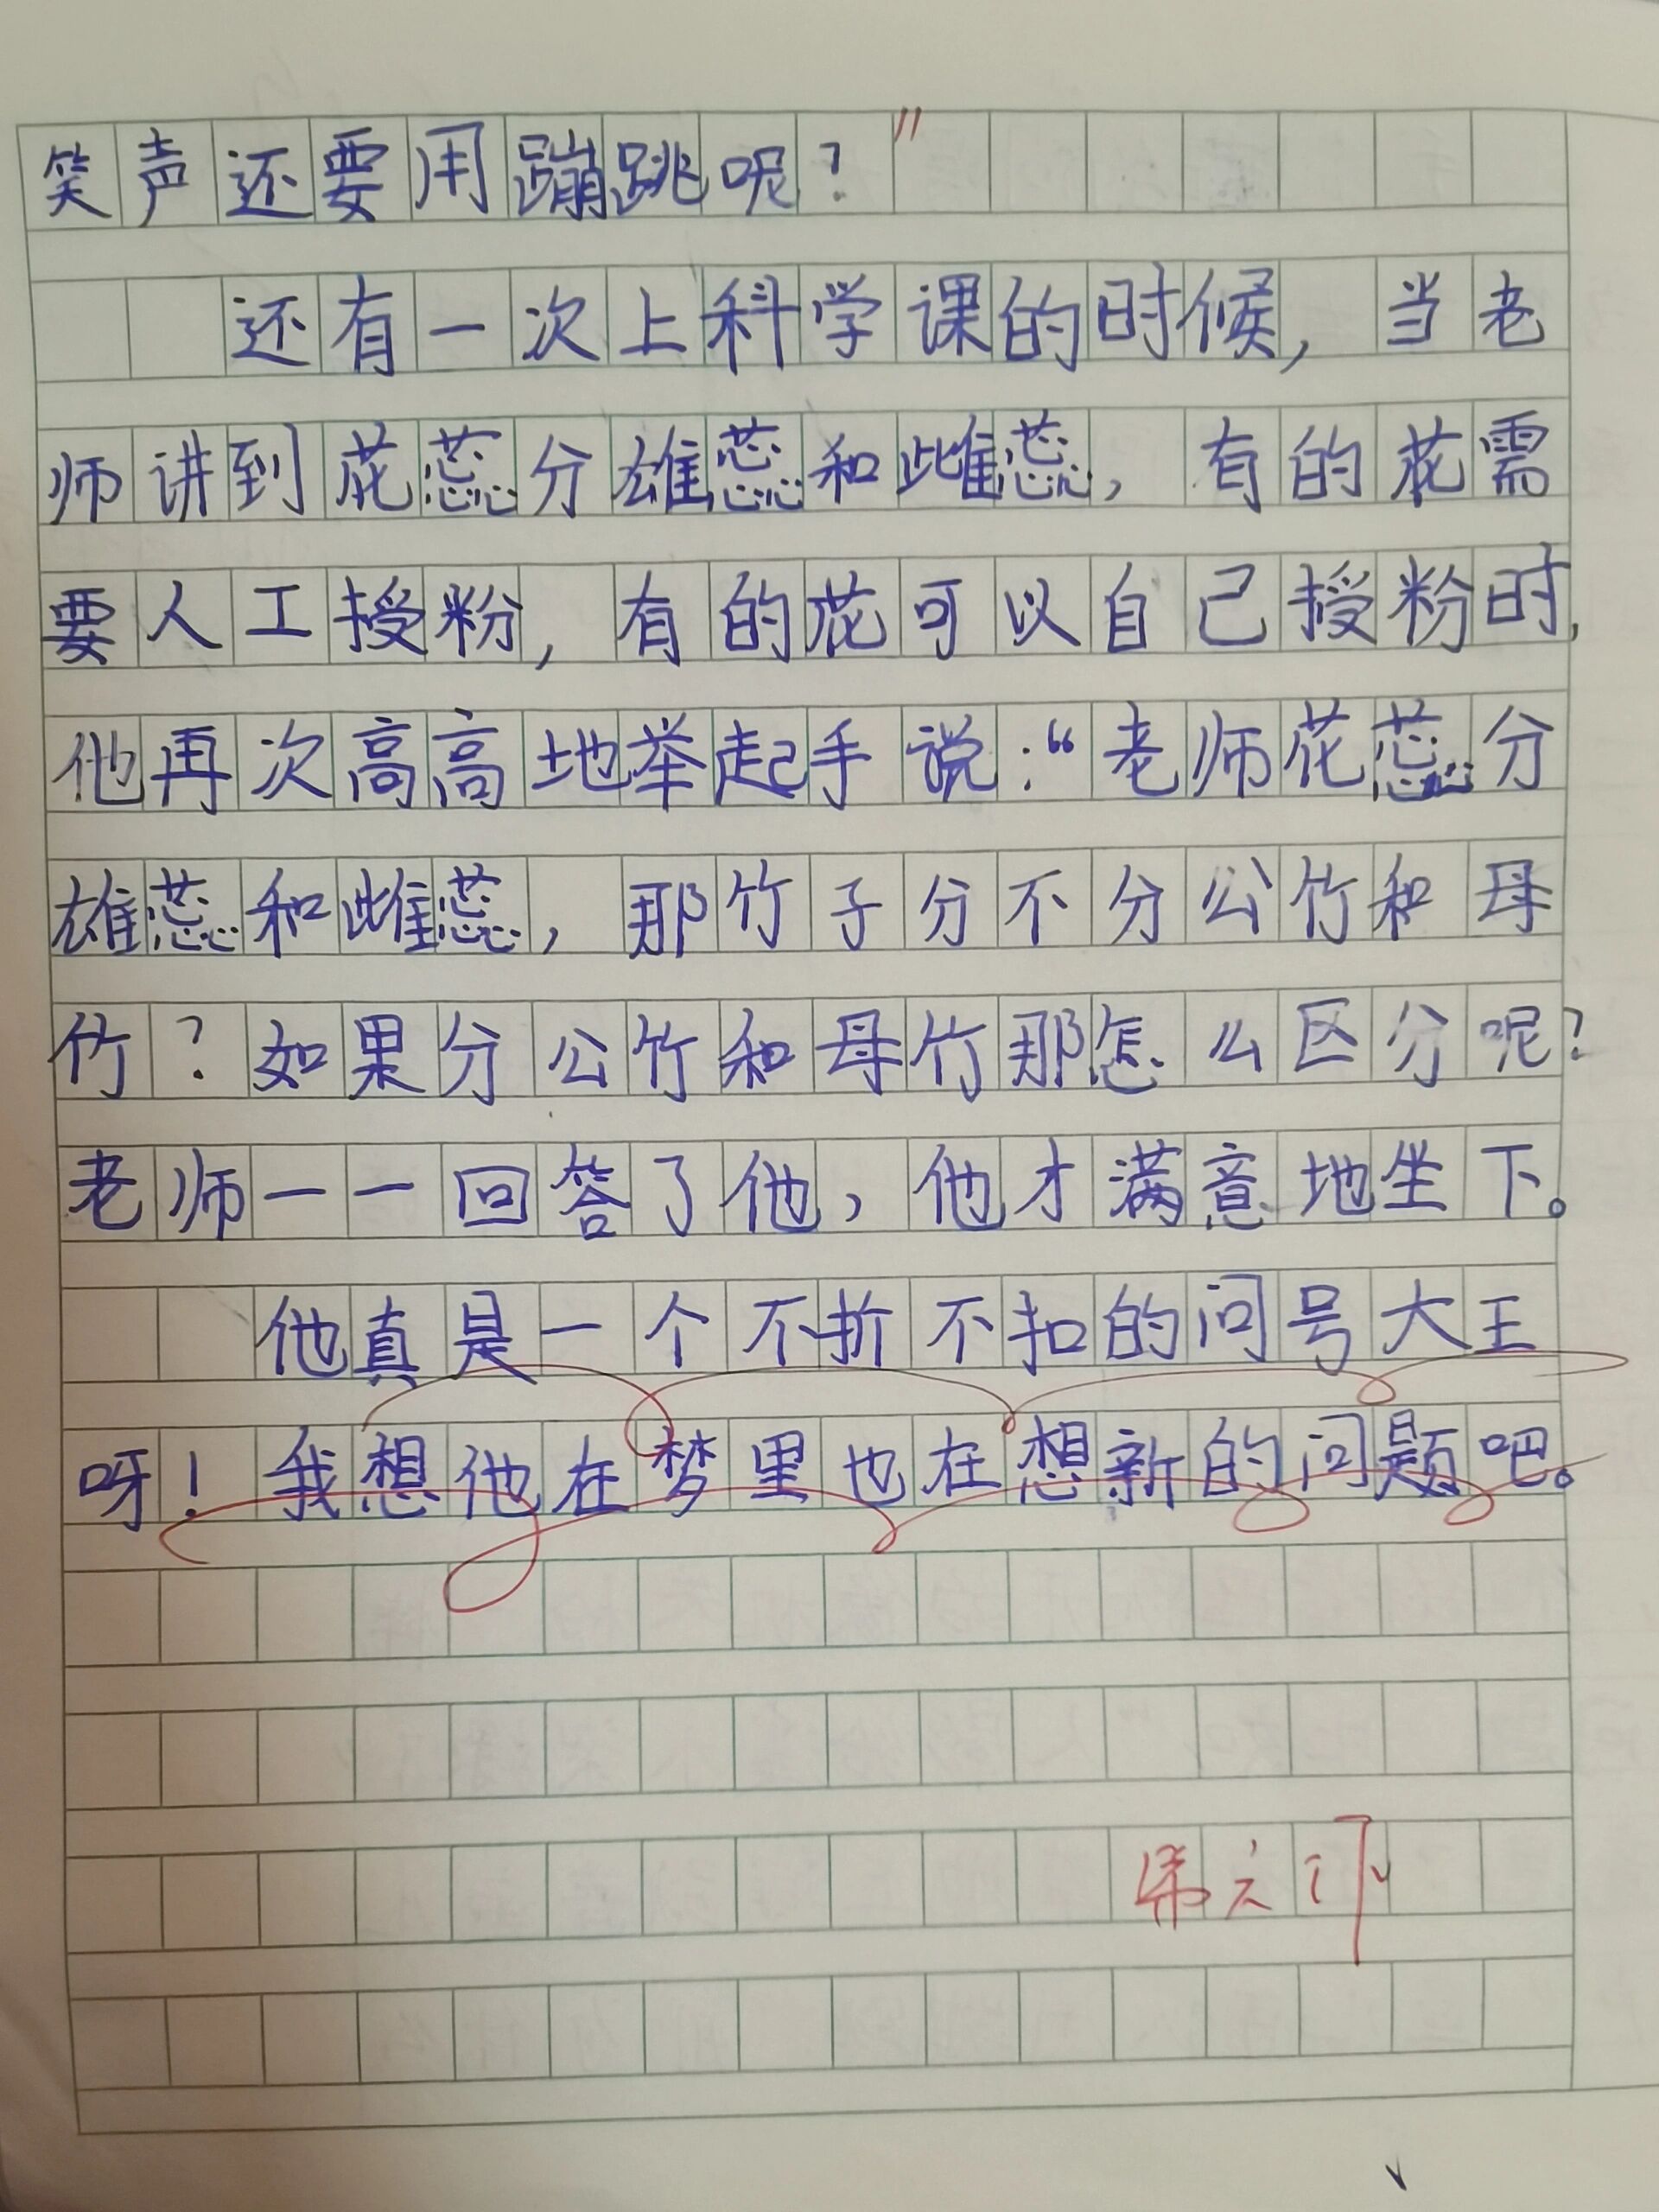 笑声还要用蹦跳呢？”
还有一次上科学课的时候，当老
师讲到花蕊分雄蕊和雌蕊，有的花需
要人工授粉，有的花可以自己授粉时，
他再次高高地举起手说：“老师花蕊分
雄蕊和雌蕊，那竹子分不分公竹和母
竹？如果分公竹和母竹那怎么区分呢？
老师一一回答了他，他才满意地坐下。
他真是一个不折不扣的问号大王
呀！我想他在梦里也在想新的问题吧。